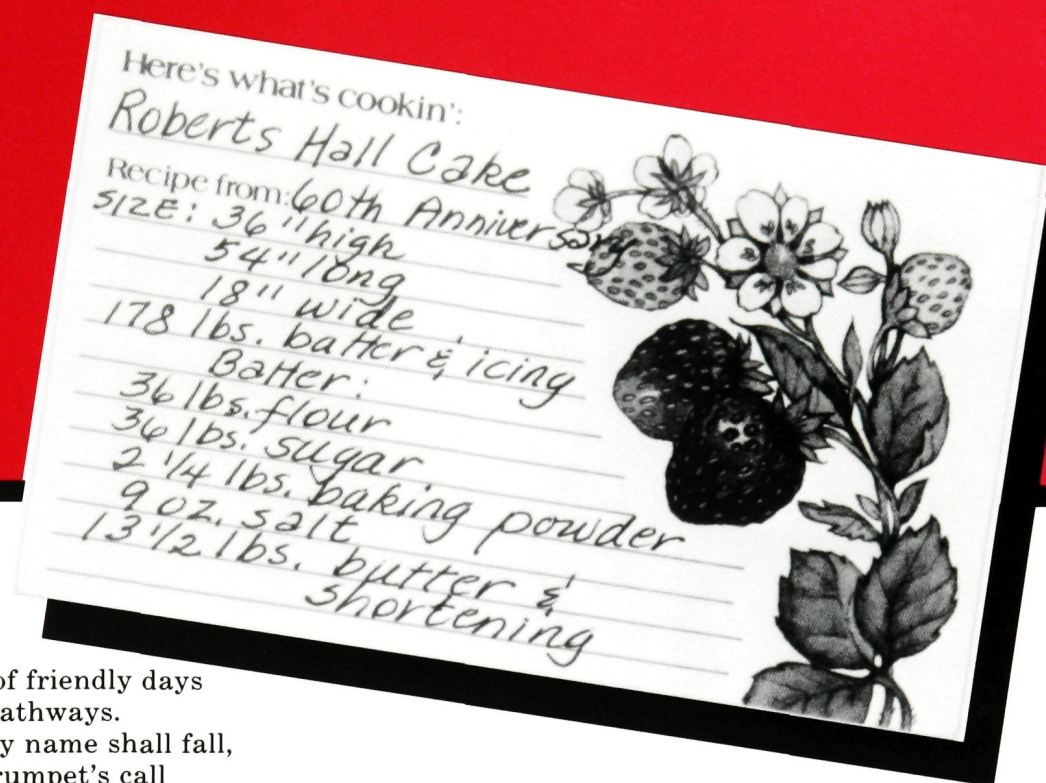 Here's what's cookin':
Roberts Hall Cake
Recipe from: 60th Anniversary
SIZE: 36" high
54" long
18" wide
178 lbs. batter & icing
Batter:
36 lbs. flour
36 lbs. sugar
2 1/4 lbs. baking powder
9 oz. salt
13 1/2 lbs. butter &
shortening
of friendly days
athways.
y name shall fall,
rumpet's call